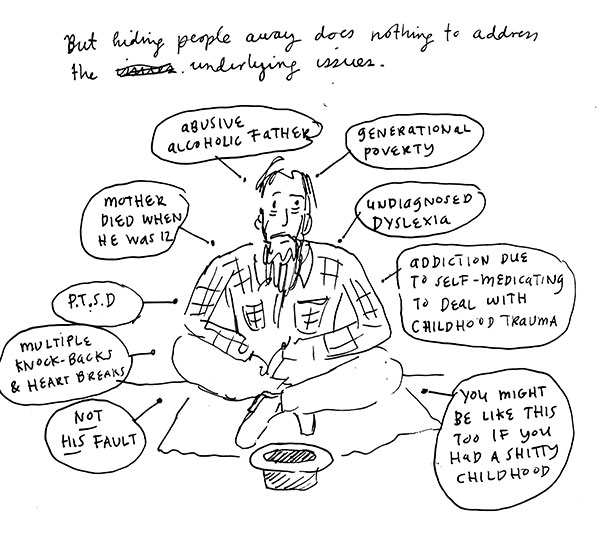 But hiding people away does nothing to address
the issues. underlying issues.
ABUSIVE
ALCOHOLIC FATHER
GENERATIONAL
POVERTY
MOTHER
DIED WHEN
HE WAS 12
UNDIAGNOSED
DYSLEXIA
P.T.S.D
ADDICTION DUE
TO SELF-MEDICATING
TO DEAL WITH
CHILDHOOD TRAUMA
MULTIPLE
KNOCK-BACKS
& HEART BREAKS
NOT
HIS FAULT
YOU MIGHT
BE LIKE THIS
TOO IF YOU
HAD A SHITTY
CHILDHOOD